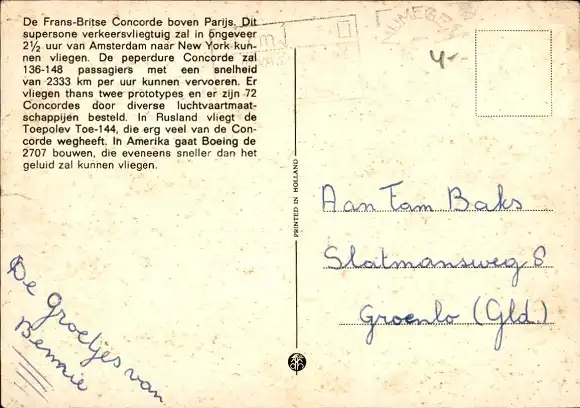 De Frans-Britse Concorde boven Parijs. Dit
supersone verkeersvliegtuig zal in ongeveer
2½ uur van Amsterdam naar New York kun-
nen vliegen. De peperdure Concorde zal
136-148 passagiers met een snelheid
van 2333 km per uur kunnen vervoeren. Er
vliegen thans twee prototypes en er zijn 72
Concordes door diverse luchtvaartmaat-
schappijen besteld. In Rusland vliegt de
Toepolev Toe-144, die erg veel van de Con-
corde wegheeft. In Amerika gaat Boeing de
2707 bouwen, die eveneens sneller dan het
geluid zal kunnen vliegen.
NIJMEGEN
4--
PRINTED IN HOLLAND
Aan Fam Baks
Slatmansweg 8
Groenlo (Gld.)
De groetjes van
Bennie